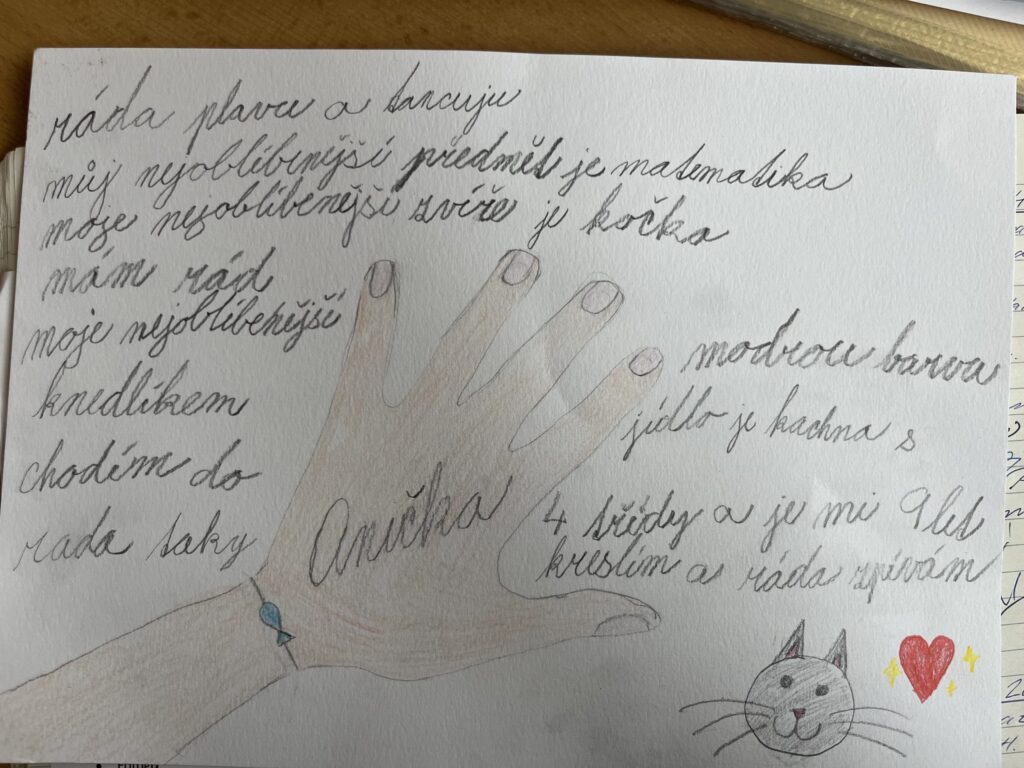 ráda plavu a tancuju
můj nejoblíbenější předmět je matematika
moje nejoblíbenější zvíře je kočka
mám rád modrou barva
moje nejoblíbenější jídlo je kachna s
knedlíkem
chodím do 4 třédy a je mi 9 let
rada taky kreslím a ráda zpívám
Anička